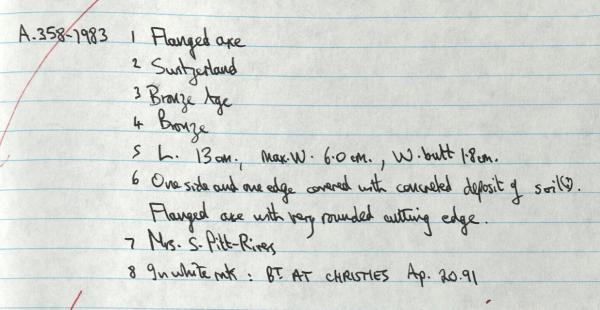 A.358-1983 1 Flanged axe
2 Switzerland
3 Bronze Age
4 Bronze
5 L. 13 cm., max.W. 6.0 cm., W. butt 1.8 cm.
6 One side and one edge covered with concreted deposit of soil(?).
Flanged axe with very rounded cutting edge.
7 Mrs. S. Pitt-Rivers
8 In white ink : BT. AT CHRISTIES Ap. 20.91